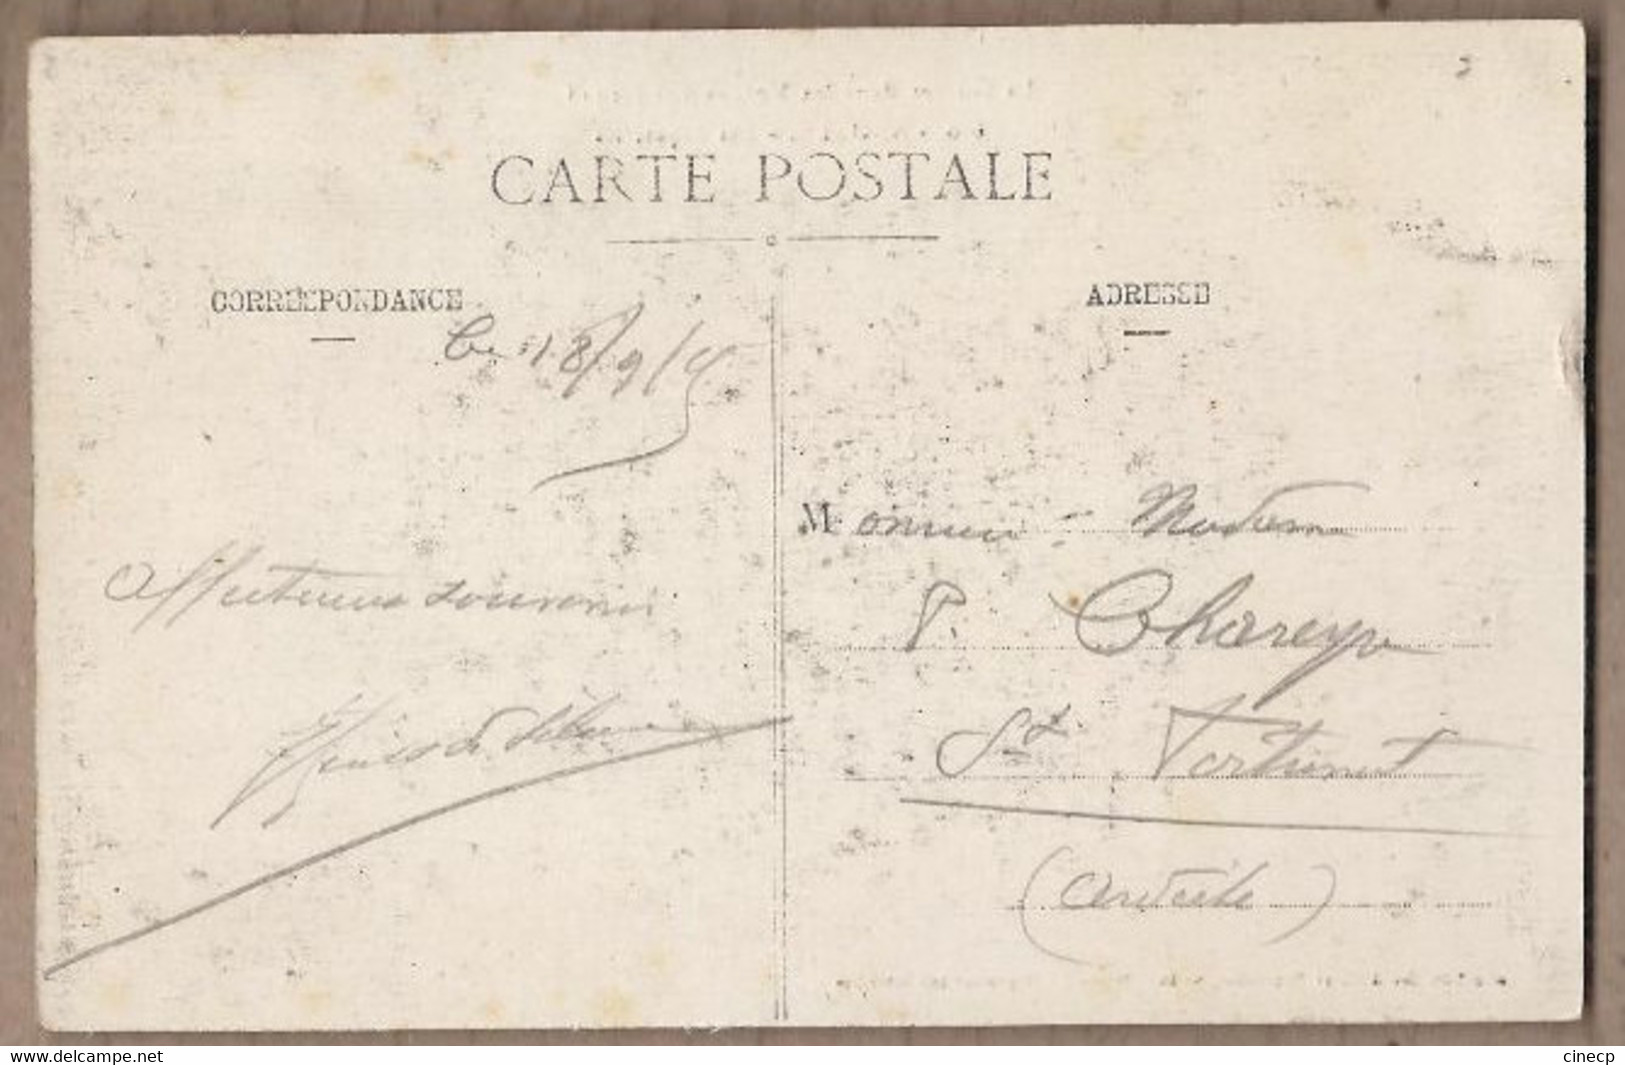 CARTE POSTALE
CORRESPONDANCE
ADRESSE
Le 18/9/15
Affectueux souvenir
Monsieur Modeste
P. Chareyre
St Fortunat
(Ardèche)
www.delcampe.net
cinecp